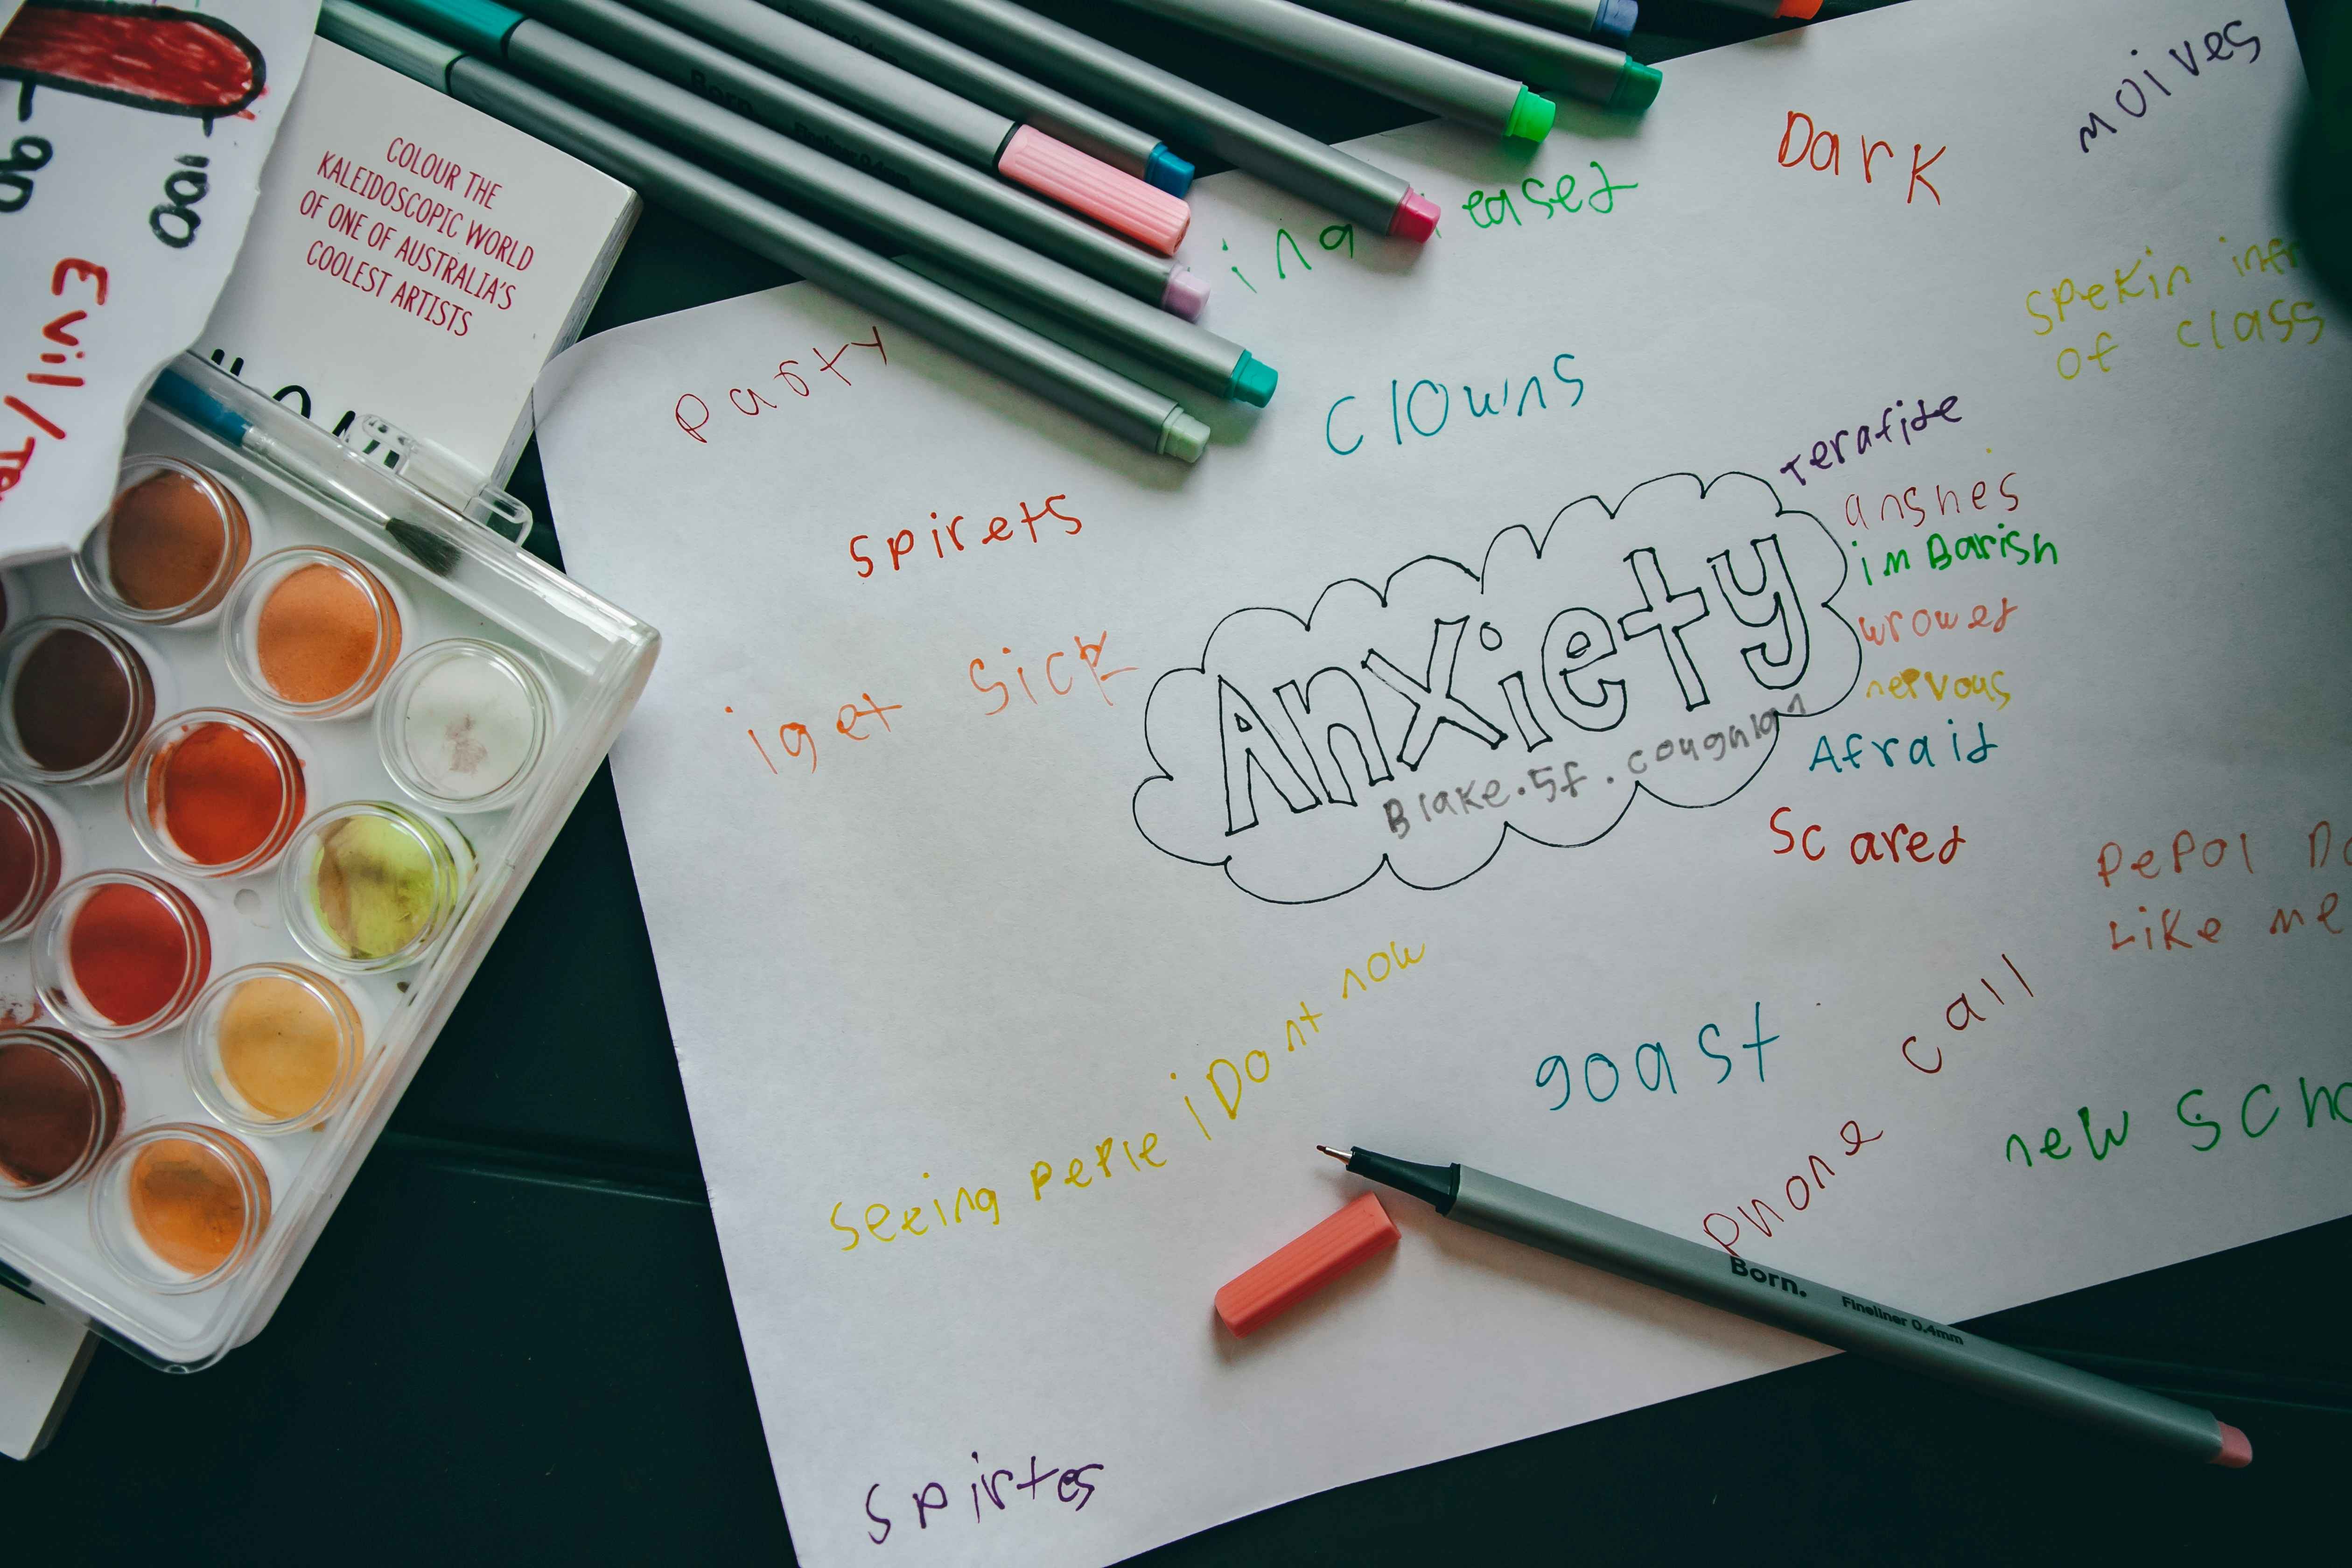 moives
Dark
eased
spekin
of class
party
clowns
COLOUR THE
KALEIDOSCOPIC WORLD
OF ONE OF AUSTRALIA'S
COOLEST ARTISTS
100
90
Evil/
spirets
i get sick
Anxiety
Blake.5f.coughlan
terafide
anshes
imBarish
wrowed
nervous
Afraid
Scared
pepol
Like me
seeing peple i Dont now
goast
phone call
new
Born.
Fineliner 0.4mm
Born.
Fineliner 0.4mm
spirtes